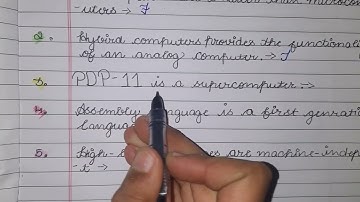 than microcom
-uters → F
2. Hybrid computers provides the functional
of an analog computer. → T
3. PDP-11 is a supercomputer. →
4. Assembly language is a first genration
langua
5. High- es are machine-indep
-t →